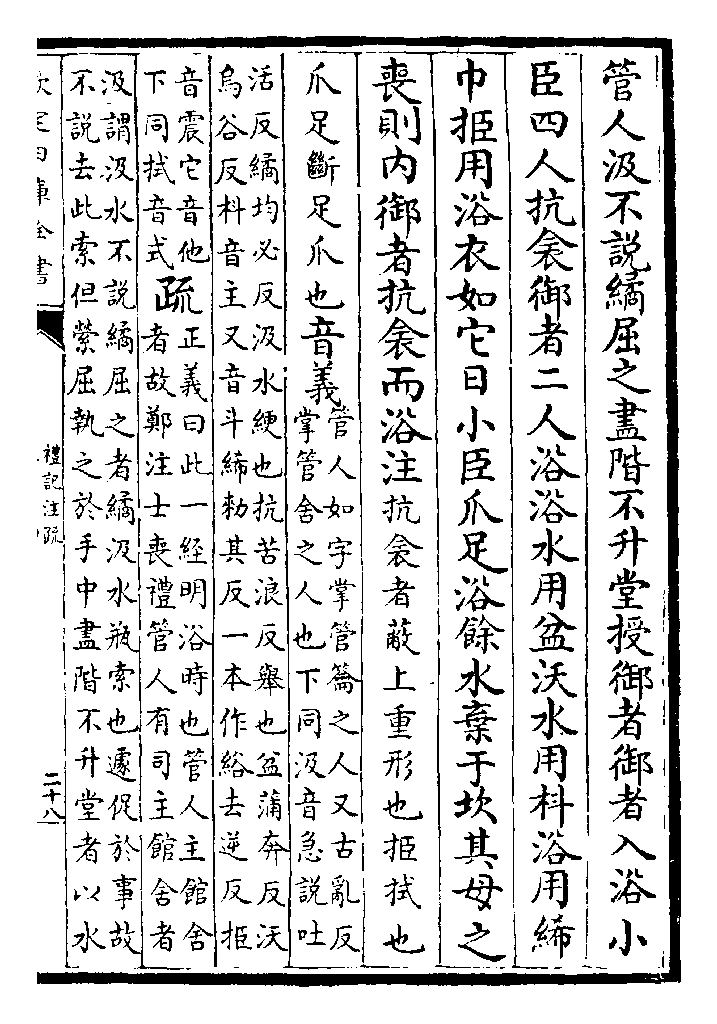 管人汲不說繘屈之盡階不升堂授御者御者入浴小
臣四人抗衾御者二人浴浴水用盆沃水用枓浴用絺
巾挋用浴衣如它日小臣爪足浴餘水棄于坎其母之
喪則内御者抗衾而浴注抗衾者蔽上重形也挋拭也
爪足斷足爪也音義
管人如字掌管籥之人又古亂反
掌管舍之人也下同汲音急說吐
活反繘均必反汲水綆也抗苦浪反舉也盆蒲奔反沃
烏谷反枓音主又音斗絺勅其反一本作綌去逆反挋
音震它音他
下同拭音式
疏
正義曰此一經明浴時也管人主館舍
者故鄭注士喪禮管人有司主館舍者
汲謂汲水不說繘屈之者繘汲水瓶索也遽促於事故
不說去此索但縈屈執之於手中盡階不升堂者以水
欽定四庫全書
禮記注疏
二十八